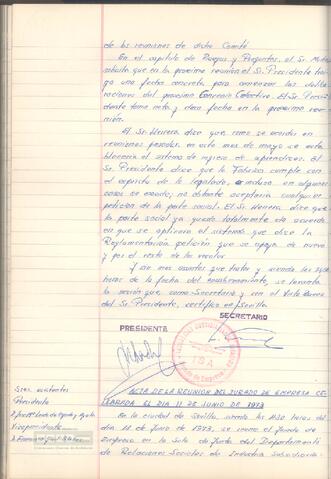 de las reuniones de dicho Comité
En el capítulo de Ruegos y Preguntas, el Sr.
solicita que en la proxima reunión el Sr. Presidente trai-
ga una fecha concreta para comenzar las delibe-
raciones del proximo Convenio Colectivo. El Sr. Presi-
dente toma nota y dará fecha en la proxima reu-
nión.
El Sr. Herrera dice que como se acordó en
reuniones pasadas, en este mes de mayo se esta-
bleceria el sistema de ingreso de aprendices. El
Sr. Presidente dice que la Fabrica cumple con
el espiritu de lo legislado, e incluso en algunos
casos se excede, no obstante aceptaria cualquier
peticion de la parte social. El Sr. Herrera dice que
la parte social ya quedó totalmente de acuerdo
en que se aplicara el sistema que dice la
Reglamentación petición que se apoya de nuevo
y por el resto de los vocales
Y sin mas asuntos que tratar y siendo las
horas de la fecha del encabezamiento, se levanta
la sesión que como Secretario y con el Visto Bueno
del Sr. Presidente, certifico en Sevilla.
SECRETARIO
PRESIDENTE
ACTA DE LA REUNIÓN DEL JURADO DE EMPRESA CE-
LEBRADA EL DIA 11 DE JUNIO DE 1973
Sres. asistentes
Presidente
Vicepresidente
En la ciudad de Sevilla, siendo las 11'30 horas del
dia 11 de Junio de 1973, se reune el Jurado de
Empresa en la Sala de Juntas del Departamento
de Relaciones Sociales de Industria Subsidiaria